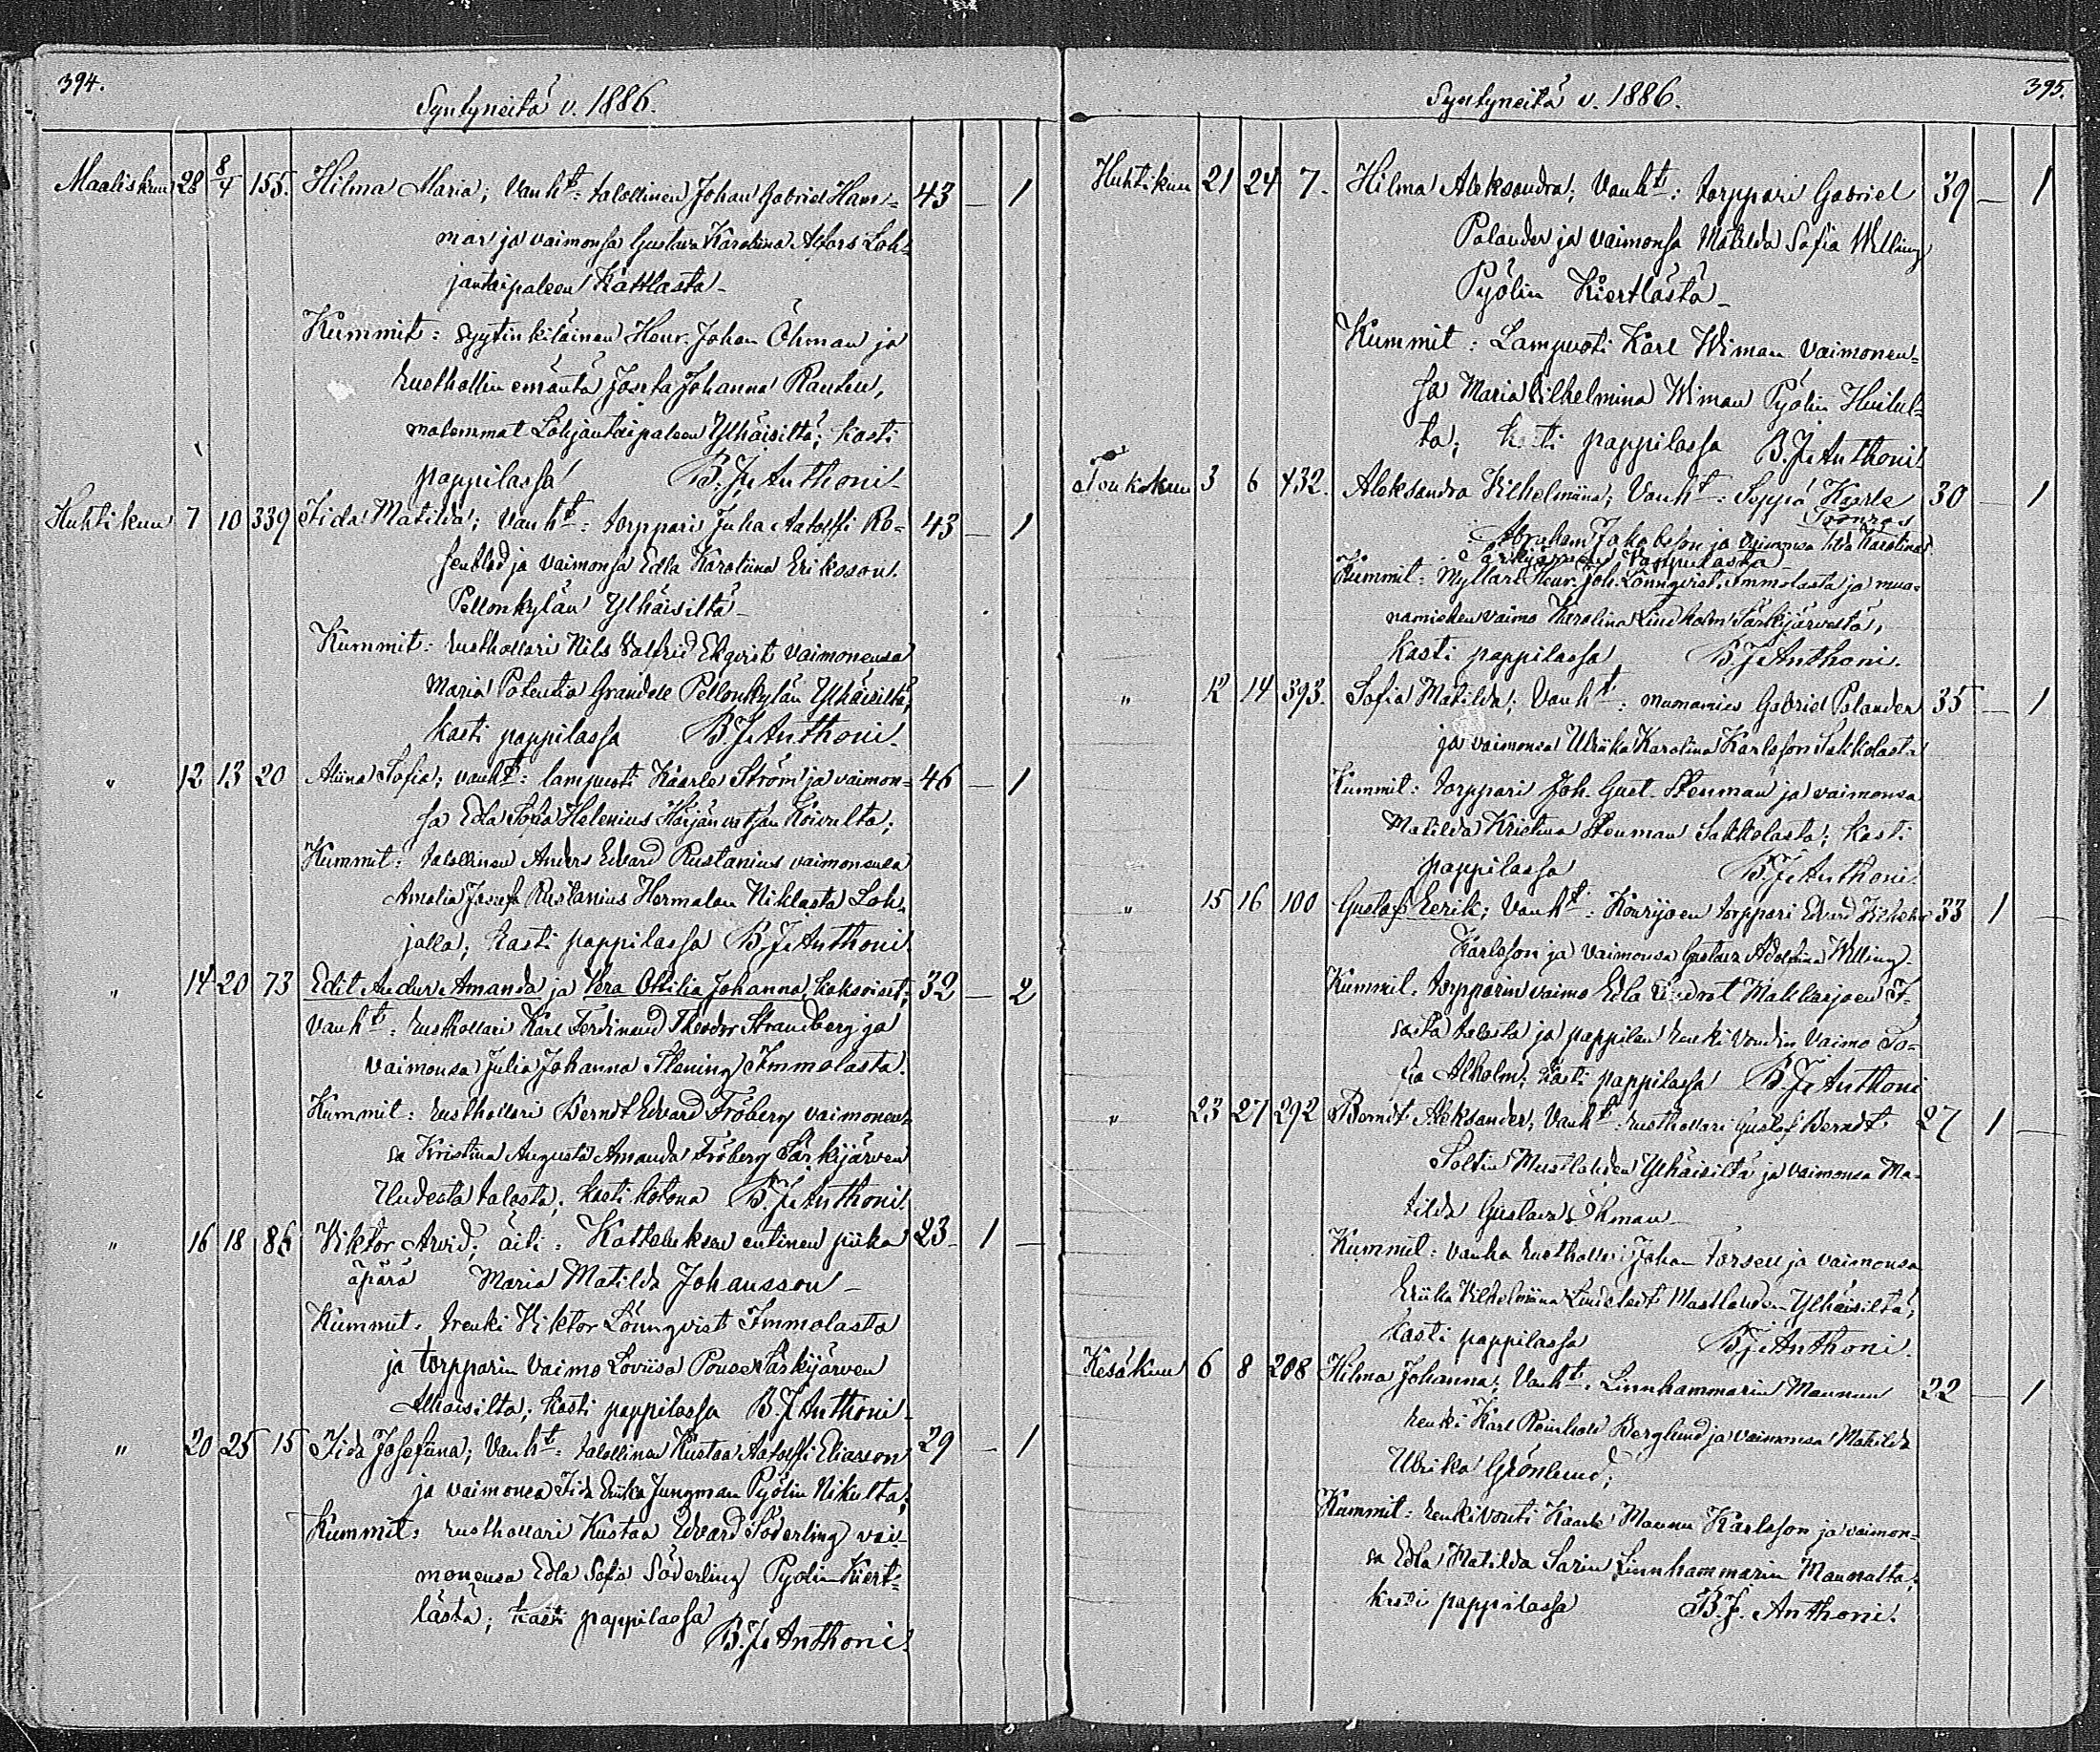 394.
Syntyneitä v. 1886.
Maaliskuu 28 8/4 155. Hilma Maria; Vanht: talollinen Johan Gabriel Ham- 43 — 1
mar ja vaimonsa Gustava Karolina Alfors Loh-
jantaipaleen Kattlasta –
Kummit: syytinkiläinen Henr. Johan Öhman ja
rusthollin emäntä Josefa Johanna Rautell,
molemmat Lohjantaipaleen Ylhäisiltä; kasti
pappilassa B. J. Anthoni
Huhtikuu 7 10 339 Iida Matilda; Vanht: torppari Juha Aadolffi Ro- 43 — 1
senbled ja vaimonsa Edla Karoliina Erikson.
Pellonkylän Ylhäisiltä –
Kummit: rusthollari Nils Valfrid Ekqvist vaimonensa
Maria Potentia Grandell Pellonkylän Ylhäisiltä;
kasti pappilassa B. J. Anthoni.
" 12 13 20 Aliina Sofia; vanht: lampuoti Kaarle Ström ja vaimon- 46 — 1
sa Edla Sofia Helenius Härjänvatsan Koivulta;
Kummit: talollinen Anders Edvard Rustanius vaimonensa
Amalia Josefa Rustanius Hormalan Niklasta Loh-
jalla; kasti pappilassa B. J. Anthoni.
" 14 20 73 Edit Amanda ja Vera Ottilia Johanna, kaksoiset; 32 — 2
Vanht: rusthollari Karl Ferdinand Theodor Strandberg ja
vaimonsa Julia Johanna Stening Immolasta.
Kummit: rusthollari Berndt Edvard Fröberg vaimonen-
sa Kristina Augusta Amanda Fröberg Särkijärven
Uudesta talosta; kasti kotona B. J. Anthoni.
" 16 18 86 Viktor Arvid; äiti: Katteluksen entinen piika 23 – 1 —
äpärä Maria Matilda Johansson –
Kummit: trenki Viktor Lönnqvist Immolasta
ja torpparin vaimo Loviisa Särkijärven
Alhaisilta; kasti pappilassa B. J. Anthoni.
" 20 25 15 Iida Josefiina; Vanht: talollinen Kustaa Aadolffi Eliasson 29 — 1
ja vaimonsa Iida Eriika Jungman Pyölin Nikulta;
Kummit: rusthollari Kustaa Edvard Söderling vai-
monensa Edla Sofia Söderling Pyölin Kiert-
lästä; kasti pappilassa
B. J. Anthoni.
395.
Syntyneitä v. 1886.
Huhtikuu 21 24 7. Hilma Aleksandra; Vanht: torppari Gabriel 39 — 1
Palander ja vaimonsa Matilda Sofia Welling
Pyölin Kiertlästä –
Kummit: Lampuoti Karl Wiman vaimonen-
sa Maria Vilhelmina Wiman Pyölin
ta; kasti pappilassa B. J. Anthoni.
Toukokuu 3 6 432. Aleksandra Vilhelmiina; Vanht: Seppä Kaarle 30 — 1
Törnros
Abraham Jakobsson ja vaimonsa Karolina
Särkijärven
Kummit: Myllari Henr. Joh. Lönnqvist Immolasta ja muo-
namiehen vaimo Karolina Lindholm Särkijärvestä,
kasti pappilassa B. J. Anthoni.
" 12 14 393. Sofia Matilda; Vanht: muonamies Gabriel Palander 35 — 1
ja vaimonsa Ulriika Karolina Karlsson Sakkolasta
Kummit: torppari Joh. Gust. Stenman ja vaimonsa
Matilda Kristina Stenman Sakkolasta; kasti
pappilassa B. J. Anthoni.
" 15 16 100 Gustaf Eerik; Vanht: Kourijoen torppari Edvard Vilhelm 33 1 —
Karlsson ja vaimonsa Gustava Adolfina Welling –
Kummit: torpparin vaimo Edla Lindrot Maikkarjoen I-
sosta talosta ja pappilan renkivoudin vaimo So-
fia Alholm; kasti pappilassa B. J. Anthoni
" 23 27 292 Berndt Aleksander; Vanht: rusthollari Gustaf Berndt 27 1 —
Soltin Mustlahden Ylhäisiltä ja vaimonsa Ma-
tilda Gustava Öhman –
Kummit: vanha rusthollari Johan Forsell ja vaimonsa
Eriika Vilhelmiina Lindstedt Mustlahden Ylhäisiltä;
kasti pappilassa B. J. Anthoni.
Kesäkuu 6 8 208 Hilma Johanna; Vanht: Linnhammarin Maunun 22 — 1
renki Karl Reinhold Berglund ja vaimonsa Matilda
Ulrika Grönlund;
Kummit: renkivouti Kaarle Maunu Karlsson ja vaimon-
sa Edla Matilda Sarin Linnhammarin Maunulta;
kasti pappilassa B. J. Anthoni.